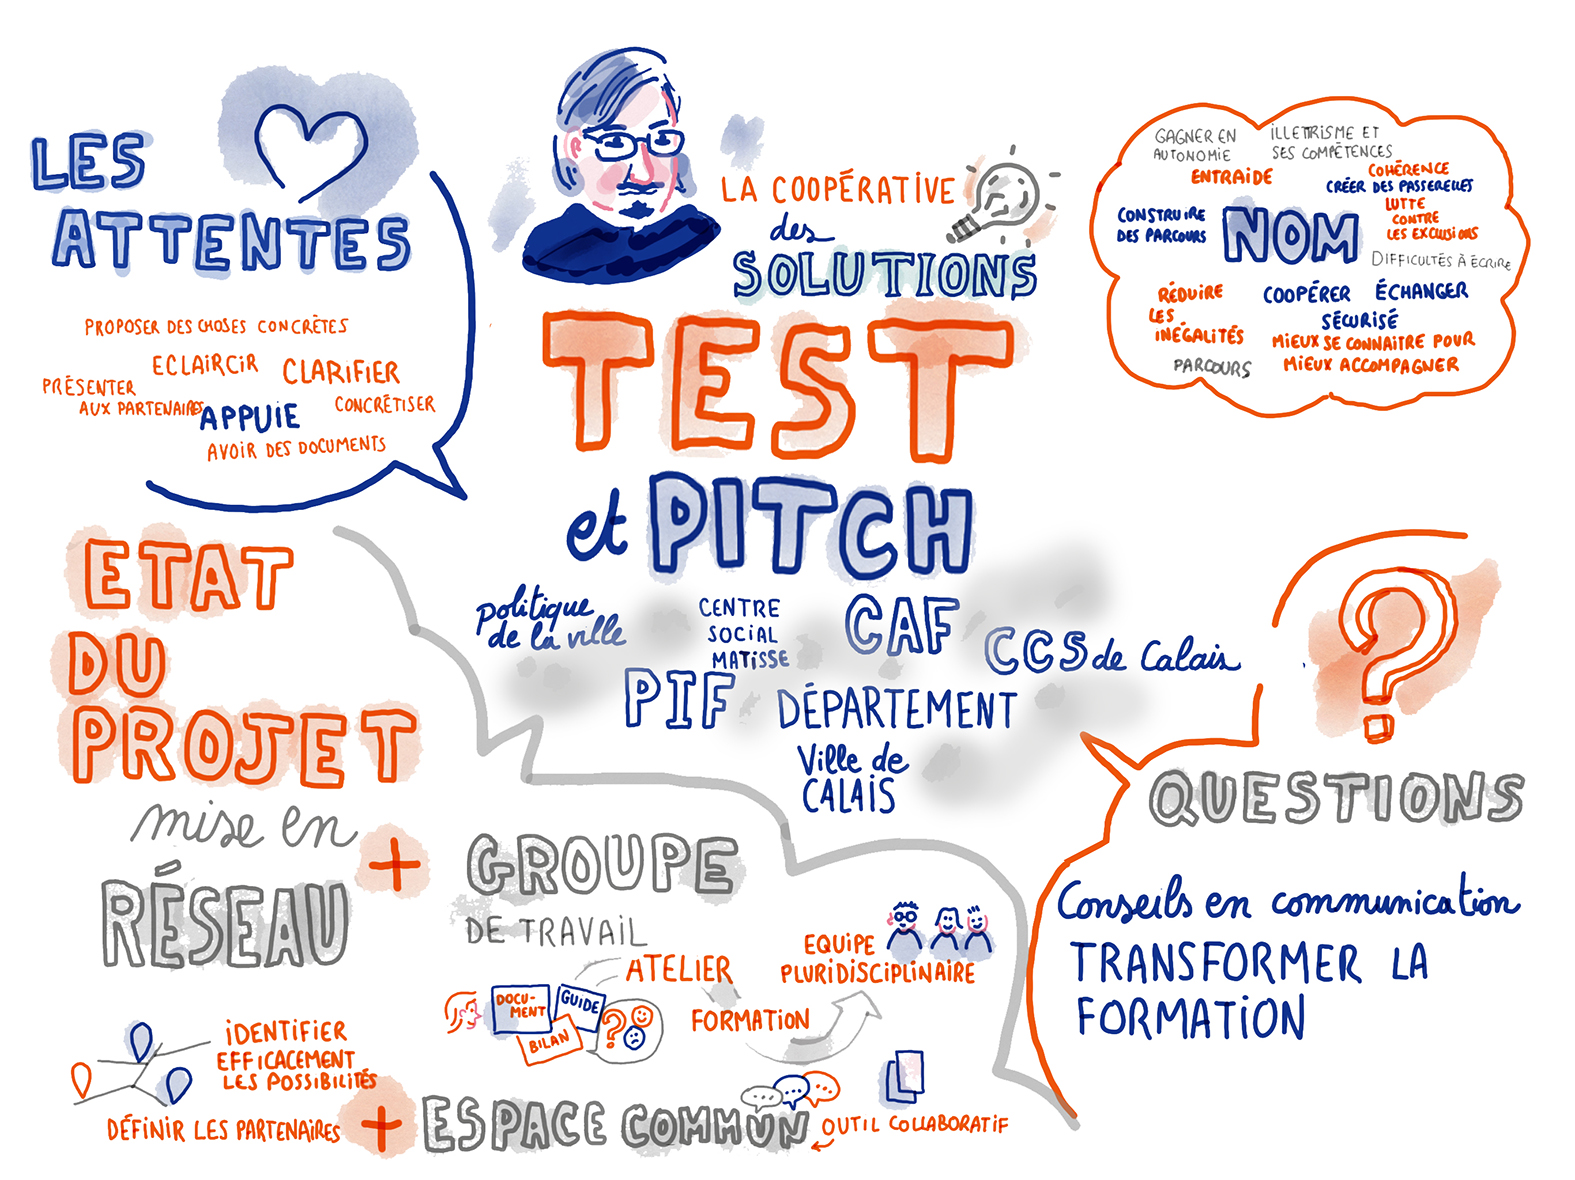 LES
ATTENTES
PROPOSER DES CHOSES CONCRÈTES
ECLAIRCIR
CLARIFIER
PRÉSENTER
AUX PARTENAIRES
APPUIE
CONCRÉTISER
AVOIR DES DOCUMENTS
LA COOPÉRATIVE
des
SOLUTIONS
TEST
et PITCH
politique
de la ville
CENTRE
SOCIAL
MATISSE
CAF
CCS de Calais
PIF
DÉPARTEMENT
Ville de
CALAIS
GAGNER EN
AUTONOMIE
ILLETTRISME ET
SES COMPÉTENCES
ENTRAIDE
COHÉRENCE
CRÉER DES PASSERELLES
CONSTRUIRE
DES PARCOURS
NOM
LUTTE
CONTRE
LES EXCLUSIONS
DIFFICULTÉS À ÉCRIRE
RÉDUIRE
LES
INÉGALITÉS
COOPÉRER
ÉCHANGER
SÉCURISÉ
MIEUX SE CONNAITRE POUR
MIEUX ACCOMPAGNER
PARCOURS
ETAT
DU
PROJET
mise en
RÉSEAU
+
GROUPE
DE TRAVAIL
ATELIER
DOCU-
MENT
GUIDE
BILAN
?
FORMATION
EQUIPE
PLURIDISCIPLINAIRE
IDENTIFIER
EFFICACEMENT
LES POSSIBILITÉS
DÉFINIR LES PARTENAIRES
+
ESPACE COMMUN
OUTIL COLLABORATIF
?
QUESTIONS
Conseils en communication
TRANSFORMER LA
FORMATION